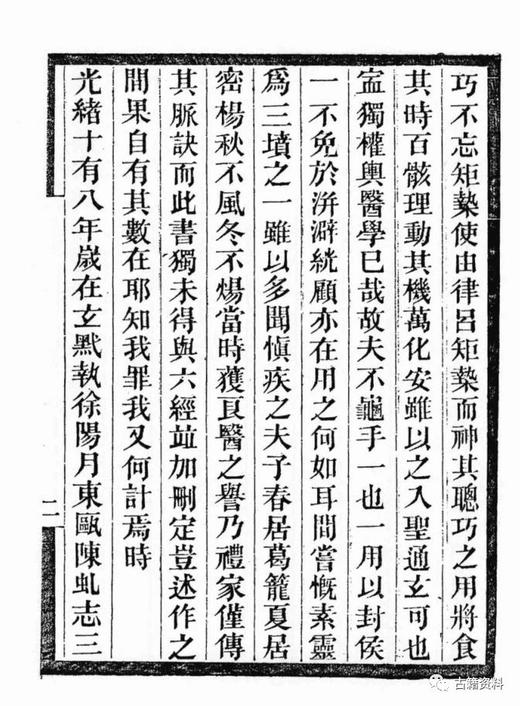 巧不忘矩蓺使由律呂矩蓺而神其聰巧之用將食
其時百骸理動其機萬化安雖以之入聖通玄可也
盇獨權輿醫學已哉故夫不龜手一也一用以封侯
一不免於洴澼絖顧亦在用之何如耳間嘗慨素靈
爲三墳之一雖以多聞愼疾之夫子春居葛籠夏居
密楊秋不風冬不煬當時獲良醫之譽乃禮家僅傳
其脈訣而此書獨未得與六經竝加刪定豈述作之
間果自有其數在耶知我罪我又何計焉時
光緒十有八年歲在玄黓執徐陽月東甌陳虬志三
二
古籍资料